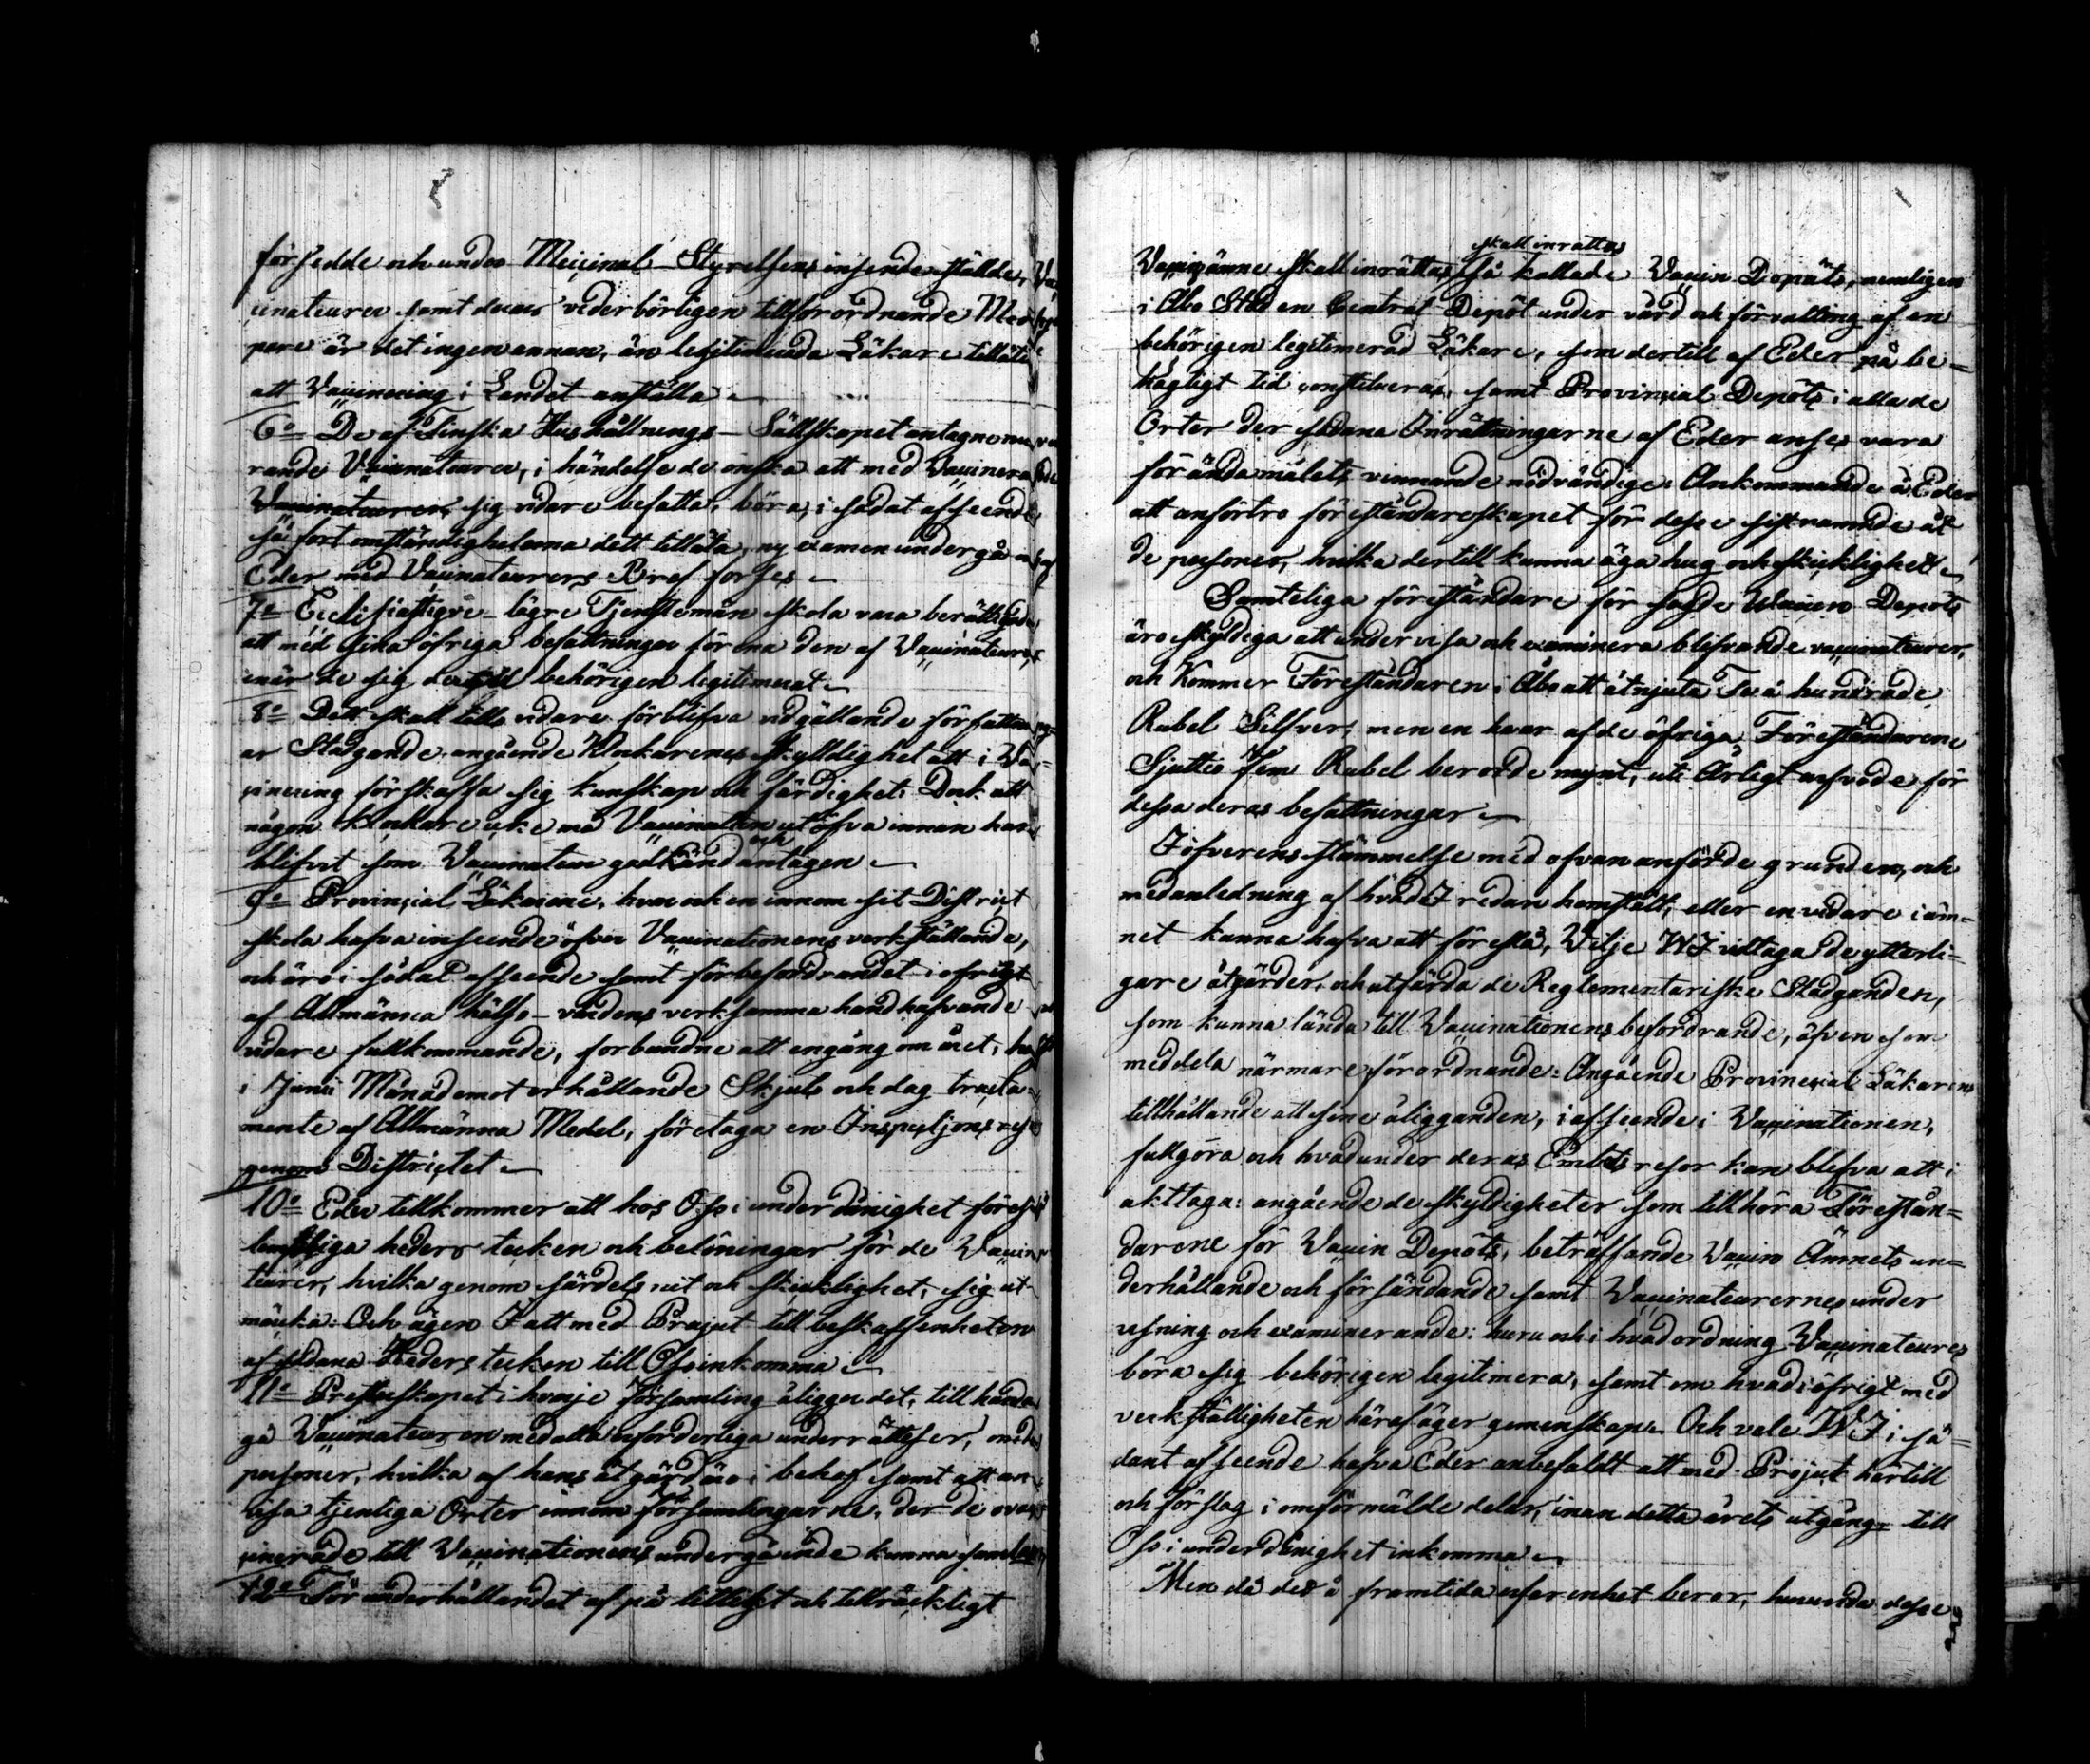 försedde och under Meicinal-Styrelsens inseende stälde, Vac
cinateurer samt deras vederbörligen tillförordnande Med
pere är det ingen annan, än legitimerade Läkare tillåtit
att Vaccinering i Landet anställa
6o De af Finska Hushållnings-Sällskapet antagne nu va
rande Vaccinateurer, i händelse de önska att med Vaccinera
Vaccinateurer sig vidare befatta, böra, i sådat afseende
så fort omständigheterna dett tillåta, ny examen undergå och af
Eder med Vaccinateurers Bref förses
7o Ecclesiastique lägre Tjenstemän skola vara berättigade
att med sina öfriga befattningar förena den af Vaccinateurer
enär de sig dertill behörigen legitimerat
8o Dett skall tills vidare förblifva vid gällande författnin
ar Stadgande angående Klockarenes skyldighet att i Vac=
cinering förskaffa sig kunskap och färdighet: Dock att
någon klockare icke må Vaccination utöfva innan han
blifvit som Vaccinateur godkänd och antagen
9o Provincial Läkarene, hvar och en innom sit District
skola hafva inseende öfver Vaccinationens verkställande,
och äro i sådat afseende samt för befordrandet i öfrigt
af Allmänna hälso-vårdens verksamma handhafvande
vidare fullkommande, forbundne att engång om året,
i Junii Månad emot erhållande Skjuts och dag tracta-
mente af Allmänna Medel, företaga en Inspectjons resa
genom Districtet
10o Eder tillkommer att hos Oss i underdånighet föreslå
lempliga heders tecken och belöningar för de Vaccina
teurer, hvilka genom särdeles nit och skicklighet, sig ut-
märka: Och ägen I att med Project till beskaffenheten
af sådana Heders tecken till Oss inkomma
11o Presterskapet i hvarje Församling åligger det, till handa
gå Vaccinateuren med alla erforderliga underrättelser, om de
personer, hvilka af hans åtgärd äro i behof samt att an
visa tjenliga Orter innom församlingarne, der de ovac
cinerade till Vaccinationens undergående kunna samlas
12o För underhållandet af på litteligt och tillräckligt
skall inrättas
Vaccinämne skall inrättas så kallade Vaccin Depôts, nemligen
i Åbo Stad en Central Depôt under vård och förvalting af en
behörigen legitimerad Läkare, som dertill af Eder på be=
hågligt tid constitueras, samt Provincial Depôts i alla de
Orter der sådana Inrättningarne af Eder anses vara
för ändamålets vinnande nödvändige: Ankommande å Eder
att anförtro föreståndareskapet för desse sistnämnde åt
de personer, hvilka dertill kunna äga hug och skicklighet
Samteliga föreståndare för sagde Vaccin Depôts
äro skyldiga att undervisa och examinera blifvande vaccinateurer,
och Kommer Föreståndaren i Åbo att åtnjuta Två hundrade
Rubel Silfver, men en hvar af de öfriga Föreståndarene
Sjuttio fem Rubel berörde mynt, uti Årligt arfvode för
dessa deras befattningar
I öfverensstämmelse med ofvananförde grunder, och
med anledning af hvad I redan hemstält, eller en vidare i äm-
net kunna hafva att föreslå, Vilje WI vidtaga de ytterli-
gare åtgärder, och utfärda de Reglementariske Stadganden,
som kunna lända till Vaccinationens befordrande, äfven som
meddela närmare förordnande: Angående Provincial Läkarens
tillhållande att sine åligganden, i afseende i Vaccinationen,
fullgöra och hvad under deras Embets resor kan blifva att i
akttaga: angående de skyldigheter som tillhöra Förestån=
darene för Vaccin Depôts, beträffande Vaccin Ämnets un=
derhållande och försändande samt Vaccinateurernes under
visning och examinerande: huru och i hvad ordning Vaccinateurer
böra sig behörigen legitimera, samt om hvad i öfrigt med
verkställigheten häraf äger gemenskap. Och vele WI i så=
dant afseende hafva Eder anbefaldt att med Project härtill
och förslag i omförmälde delar, inan detta årets utgång till
Oss i underdånighet inkomma
Men då det å framtida erfarenhet beror, huruvida desse